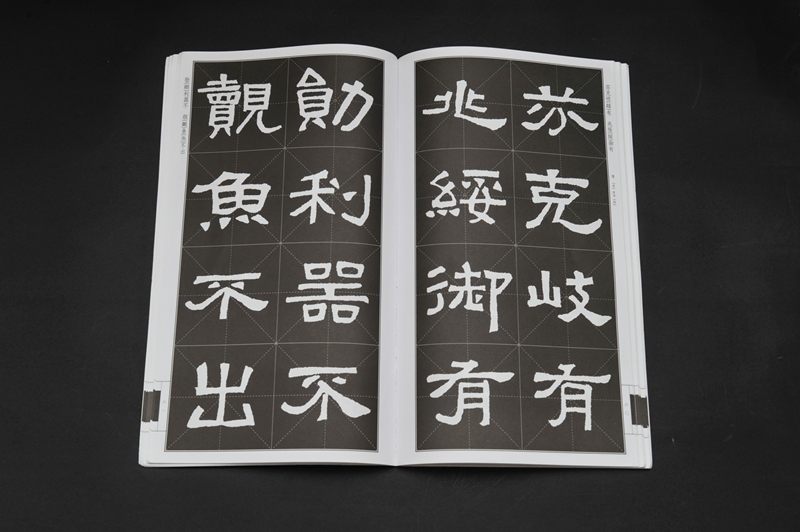 芬克岐有
兆綏御有
勛利器不
覿魚不出